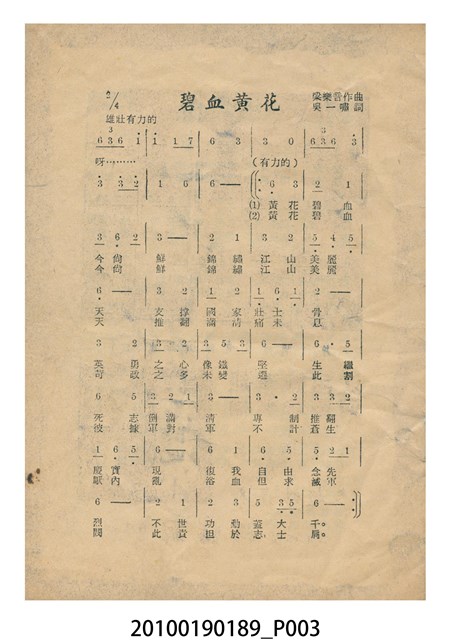 2/4
碧血黃花
梁樂音作曲
吳一嘯 詞
雄壯有力的
3 3
6 3 6 1 | 1 · 1 7 | 6 3 | 3 0 | 6 3 6 · 3
呀……… (有力的)
3 · 3 2 | 1 6 | 6 — | 6 · 3 | 2 1
(1) 黃 花 碧 血
(2) 黃 花 碧 血
3 6 2 | 3 — | 2 1 | 3 · | 5 4 5
今 尚 鮮 錦 繡 江 山 美 麗
今 尚 鮮 錦 繡 江 山 美 麗
6 · | 3 2 | 1 2 | 1 6 1 | 2 —
天 支 撐 國 家 壯 士 骨
天 推 翻 滿 清 痛 未 息
3 2 | 3 · 2 | 3 5 3 | 2 — | 6 · 5
英 勇 之 心 像 鐵 堅 生 繼
苛 政 之 多 未 變 遷 此 割
6 5 | 3 2 1 | 3 — | 3 · 2 | 3 3 2
死 志 倒 滿 清 專 制 推 翻
彼 據 軍 對 軍 不 計 蒼 生
1 6 5 | 3 — | 6 1 | 2 · 3 | 5 2 1
慶 實 現 復 我 自 由 念 先
內 亂 浴 血 但 求 滅 軍
6 — | 2 1 | 2 3 | 5 3 5 | 6 —
烈 不 世 功 勳 蓋 大 千。
閥 此 責 担 於 志 士 肩。
20100190189_P003